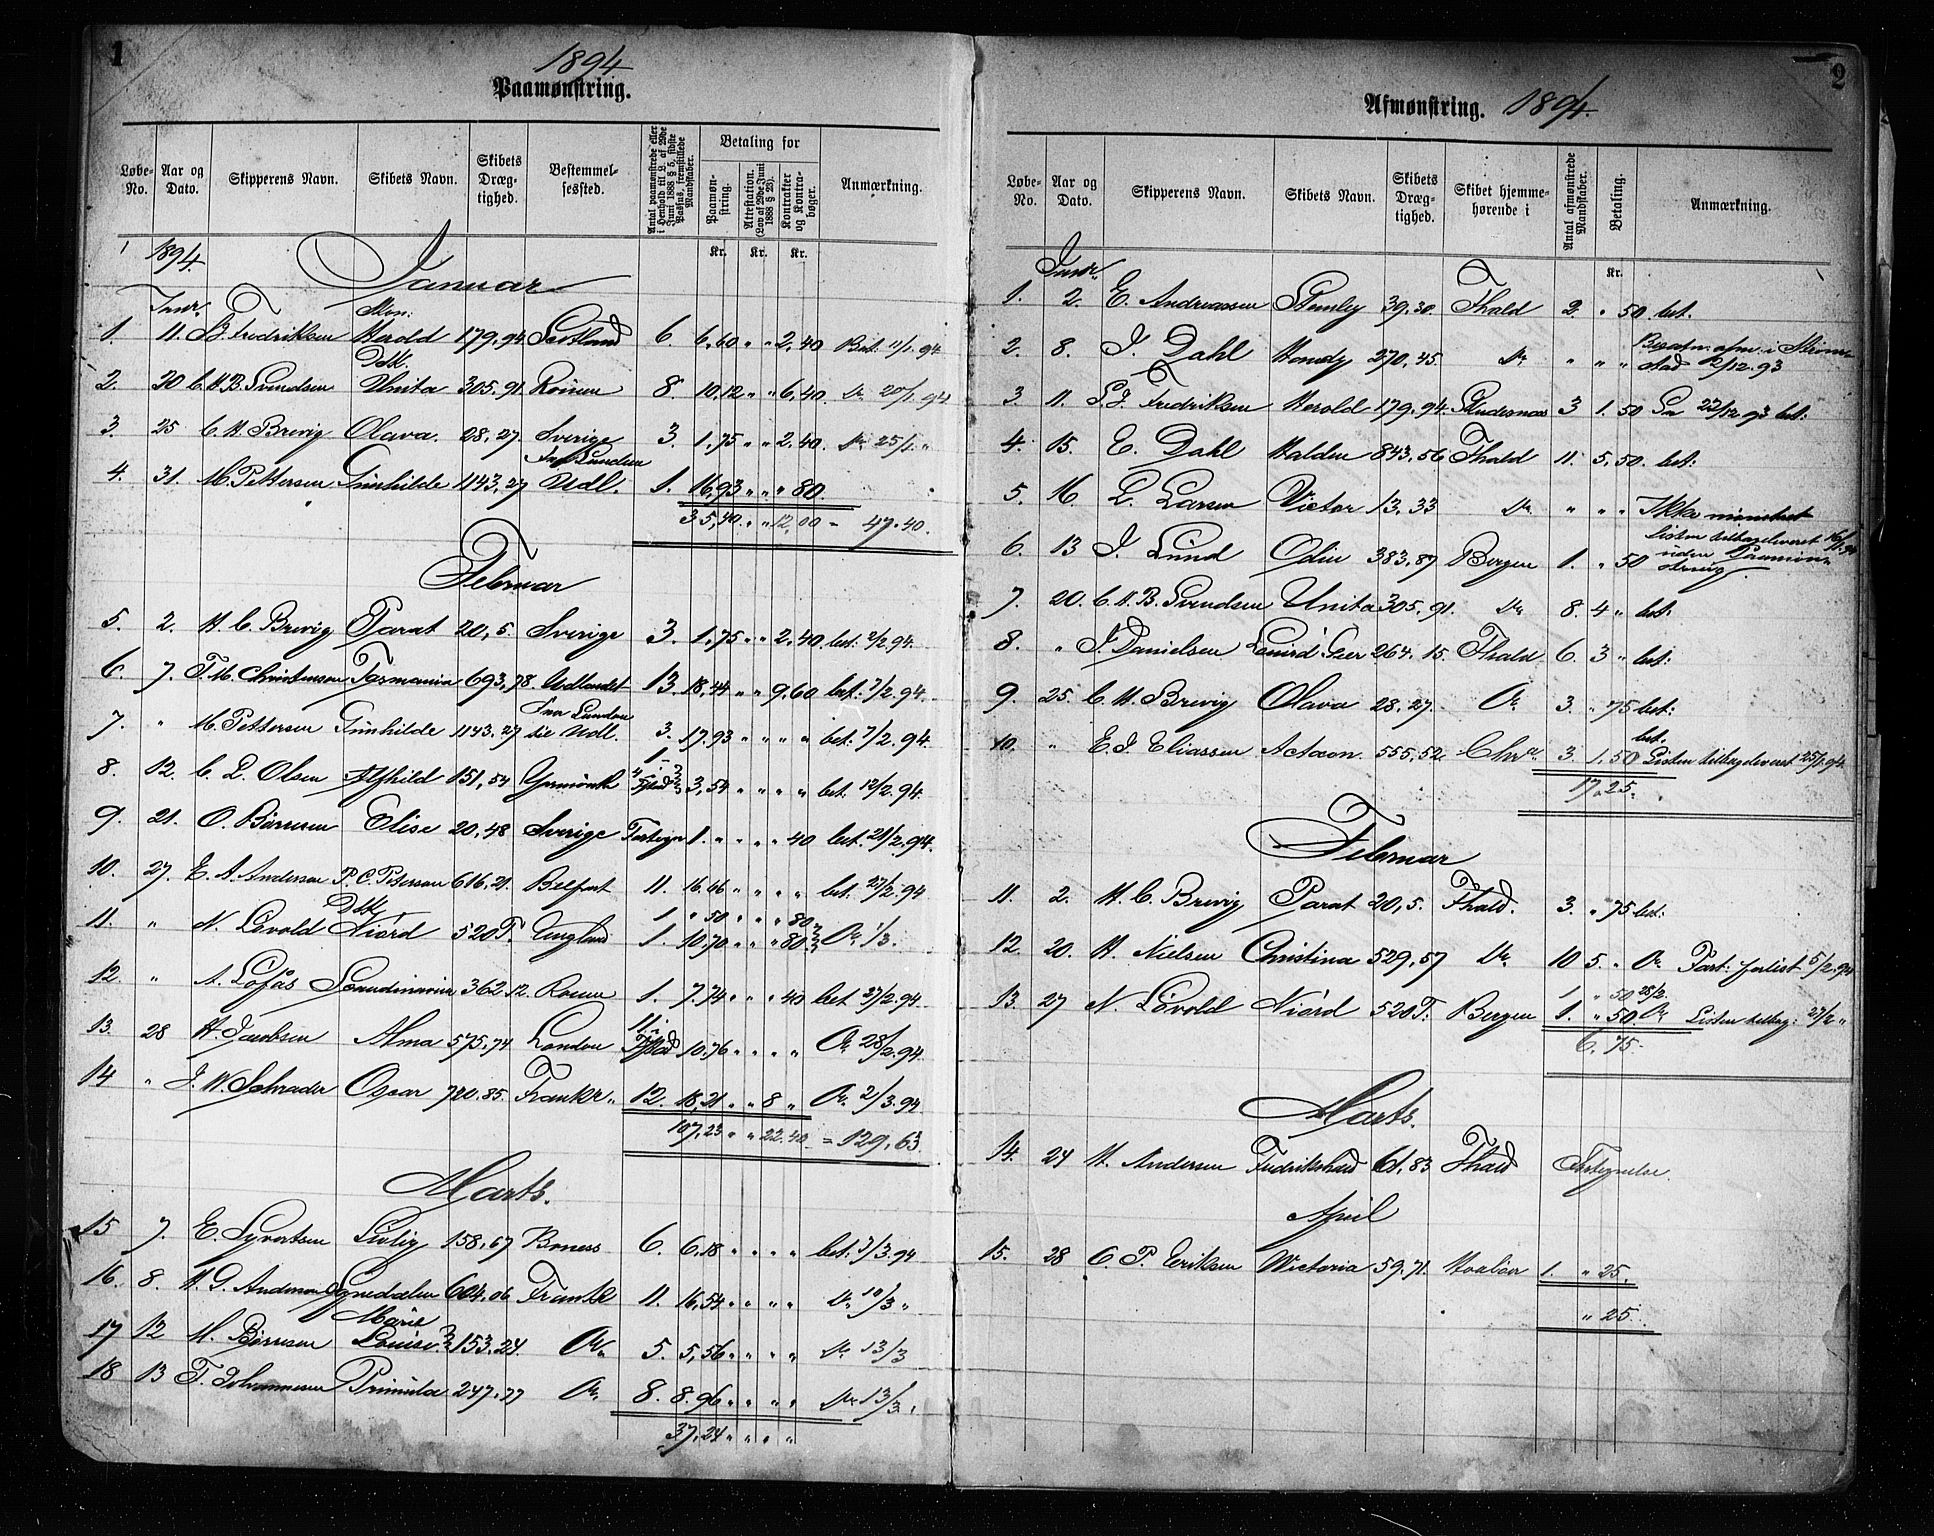 1
1894
Paamønstring.
Løbe-No.
Aar og Dato.
Skipperens Navn.
Skibets Navn.
Skibets Dræg-tighed.
Bestemmel-sessted.
Antal paamønstrede eller i Henhold til L. af 29de Juni 1888 § 5, sidste Passus, fremstillede Mandskaber.
Betaling for
Paamøn-string.
Attestation. (Lov af 29de Juni 1888 § 25).
Kontrakter og Kontra-bøger.
Anmærkning.
Kr. Kr. Kr.
1894.
Januar
Janr.
1. 11. Fredriksen Herold 179,94 6. 6,60 " " 2,40 Bet: 11/1 94
2. 20 C. H. B. Svendsen Unita 305,91. Rouen 8. 10,12 " " 6,40. Do 20/1. 94
3. 25 C. H. Brevig Olava. 28,27. Sverige 3. 1,75 " " 2,40 Do 25/1. "
4. 31. M. Pettersen Gunhilde 1143,27 Udl. 1. 16,93 " " " 80
35,40. " " 12,00 = 47.40.
Februar
5. 2. H. C. Brevig Parat 20,5. Sverige 3. 1,75 " " 2,40 bet. 2/2. 94.
6. 7. T. M. Christensen Tasmania 693,78. Udlandet 13. 18,44 " " 9,60 bet: 7/2. 94.
Fra London
7. " M. Pettersen Gunhilde 1143.27 til Udl. 3. 17.93 " " " " bet: 7/2. 94.
8. 12. C. L. Olsen Alfhild 151,54 3,54 " " " " bet: 12/2. 94.
9. 21. O. Børresen Elise 20,48 Sverige 1. " " " 40 bet. 21/2. 94.
10. 27. E. A. Andersen P. C. Petersen 616,21. Belfast 11. 16.46 " " " " bet. 27/2. 94
1 " 50 " " " 80
11. " N. Løvold Niord 520 T. England 1. 10.70 " " " 80 Do 1/3.
12. " A. Lofås Scandinavien 362,12. Rouen 1. 7.74 " " " 40 bet 27/2. 94.
13. 28 H. Jacobsen Alma 575,74 London 10.76 " " " " Do 28/2. 94.
14 " J. W. Schrader Oscar 720.85. Frankr. 12. 18,21 " " 8 " Do 2/3. 94
107,23 " " 22.40 = 129,63
Marts.
15 7. E. Syvertsen Solig 158,67 Boness 6. 6.18 " " " " bet: 7/3. 94
16. 8. H. G. Andersen 604.06 Frankr 11. 16,54 " " " " Do 10/3 "
Marie
17 12 M. Børresen Louise 153.24. Do 5. 5,56 " " " " Do 13/3
18 13 T. Johannesen Primula 247.77 Do. 8. 8.96 " " " " Do 13/3.
37,24 " " " "
2
Afmønstring. 1894.
Løbe-No.
Aar og Dato.
Skipperens Navn.
Skibets Navn.
Skibets Dræg-tighed.
Skibet hjemme-hørende i
Antal afmønstrede Mandskaber.
Betaling.
Anmærkning.
Kr.
Janr.
1. 2. E. Andreassen Stanley 39,30. Fhald 2. " 50 bet.
2. 8. J. Dahl 270,45. Do " " " Besætn: afm: i Strøm-stad 2/12. 93
3. 11. Fredriksen Herold 179,94. Skudesnæs 3 1. 50 Sa 22/12 93 bet:
4. 15. E. Dahl Halden 843,56 Fhald 11. 5,50. bet:
5. 16. L. Larsen Victor 13,33 Do " " " Ikke mønstret
6. 13 J. Lund Odin 383,87 Bergen 1. " 50 Listen tilbageleveret uden
7. 20. C. H. B. Svendsen Unita 305,91. Do 8. 4 " bet:
8. " J. Danielsen 264,15. Fhald 6. 3 " bet:
9. 25. C. H. Brevig Olava 28,27. Do 3. " 75 bet:
bet.
10. " E. J. Eliassen Actæon. 555,52. Chra. 3. 1,50 Listen tilbageleveret 25/1. 94.
17,25.
Februar
11. 2. H. C. Brevig Parat 20,5. Fhald. 3. " 75 bet:
12. 20. H. Nielsen Christina 529,57 Do 10 5. " Do 5/2. 94
1 " 50 28/2.
13. 27 N. Lövold Niord 520 T. Bergen 1. " 50. Do Listen tilbag: 27/2 "
6,75
Marts.
14. 24 H. Andersen Fredrikshald 61,83 Fhald
April
15. 28 C. P. Eriksen Victoria 59.71. 1. " 25.
" 25.